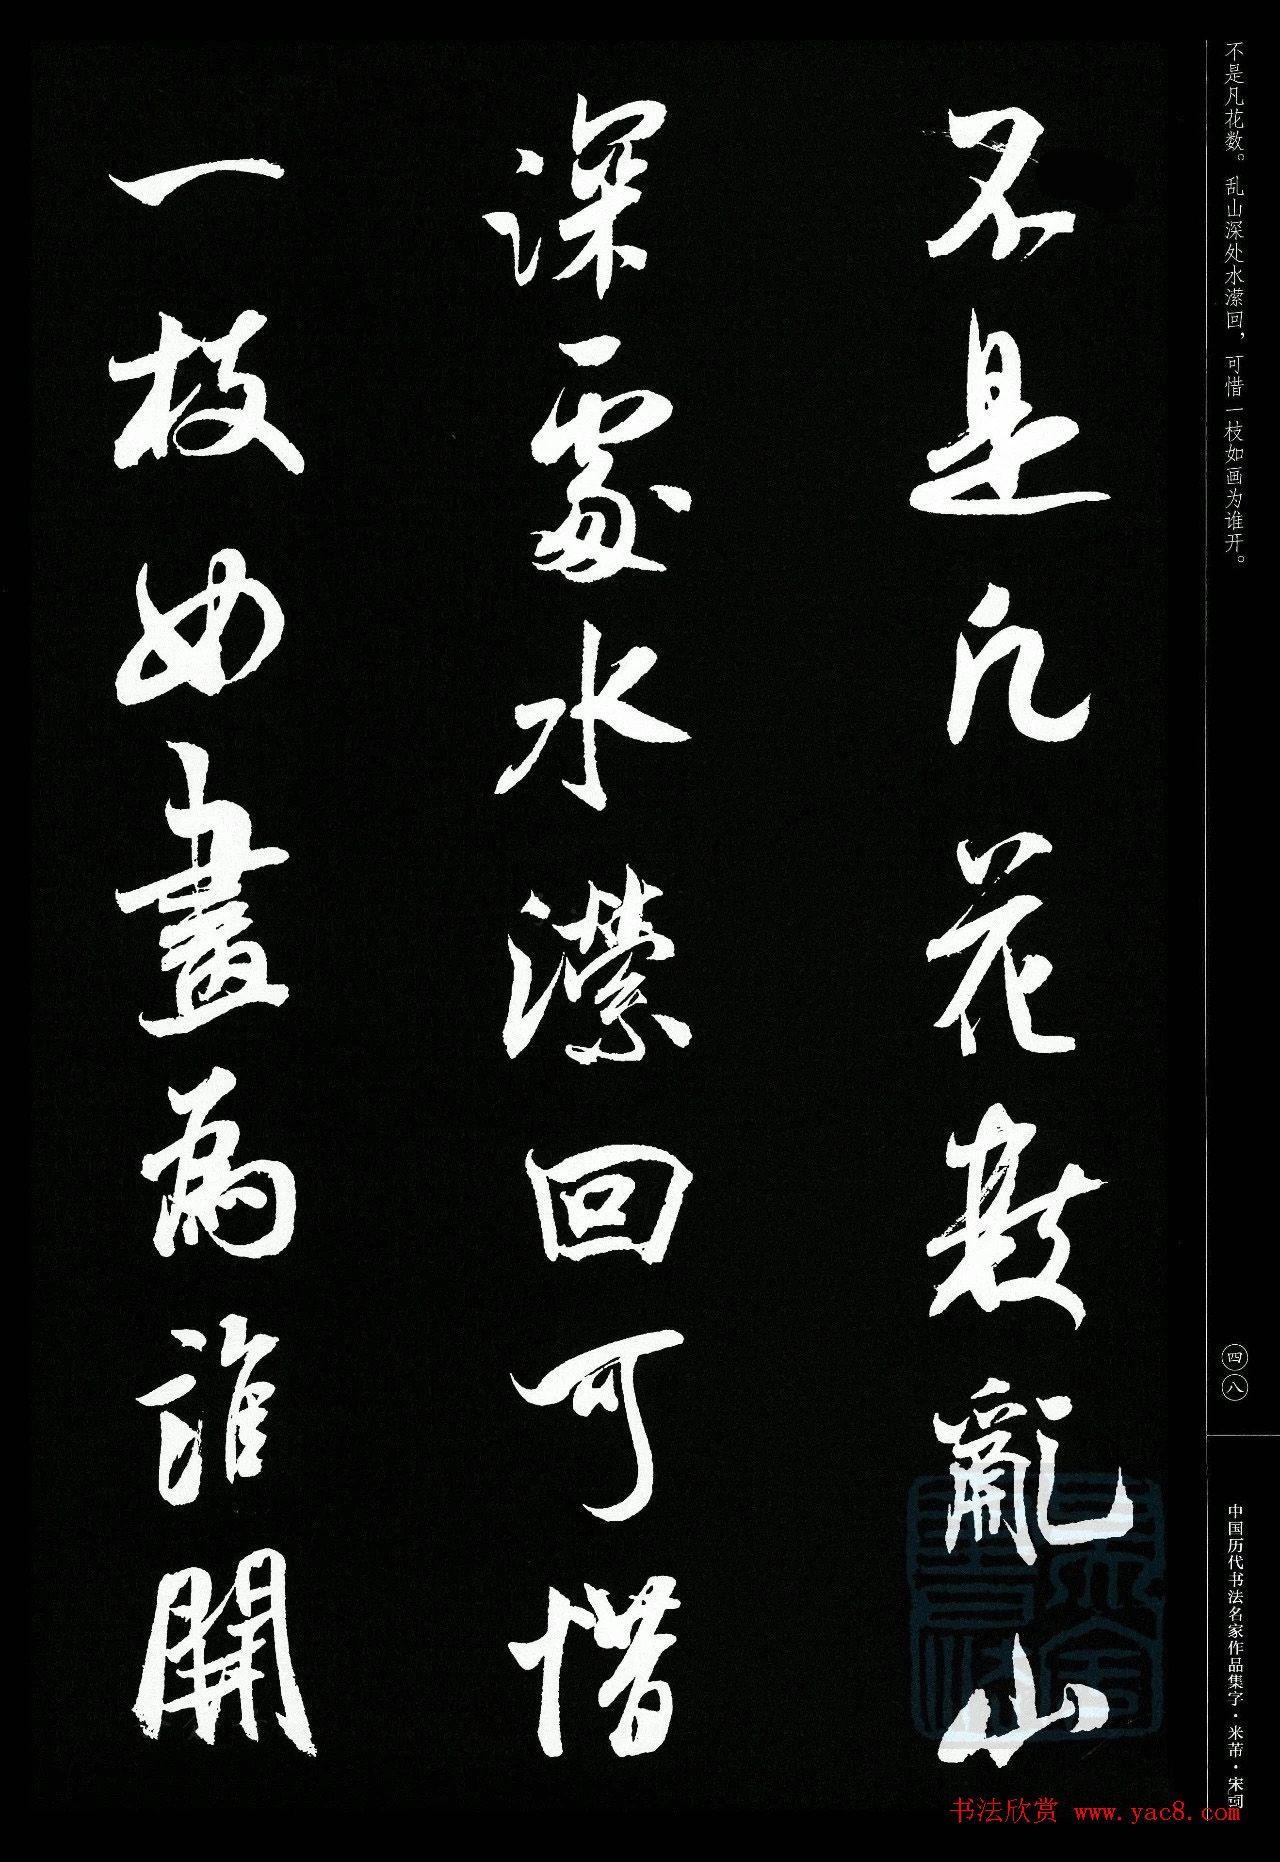 不是凡花數亂山
深處水瀠回可惜
一枝如畫為誰開
不是凡花数。乱山深处水潆回，可惜一枝如画为谁开。
四八
中国历代书法名家作品集字·米芾·宋词
书法欣赏 www.yac8.com